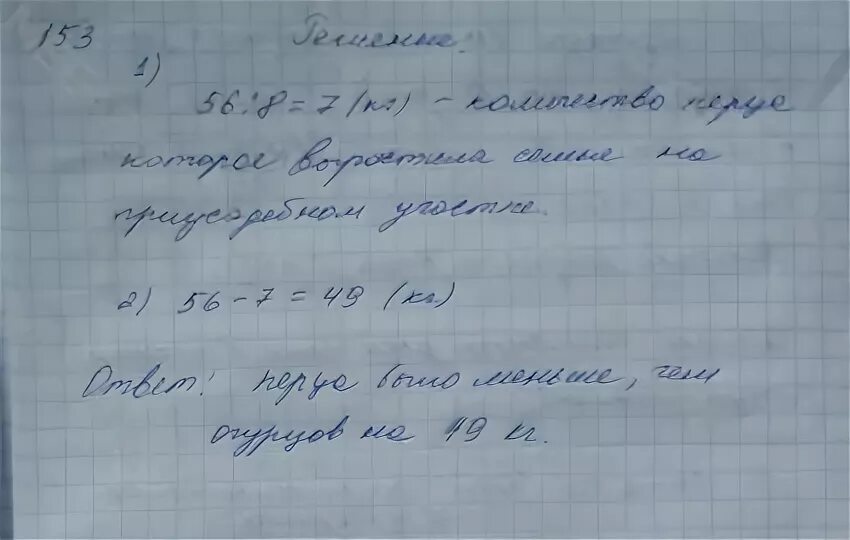 153 Решение:
1)
56:8=7 (кг) - количество перца
которое выростила семья на
приусадебном участке.
2) 56-7=49 (кг)
Ответ: перца было меньше, чем
огурцов на 49 кг.